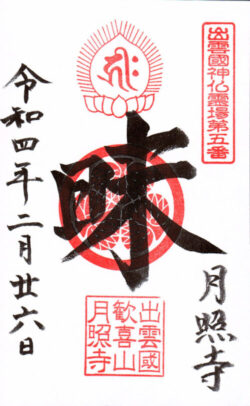 出雲國神仏霊場第五番
月照寺
昧
出雲國
歡喜山
月照寺
令和四年二月廿六日